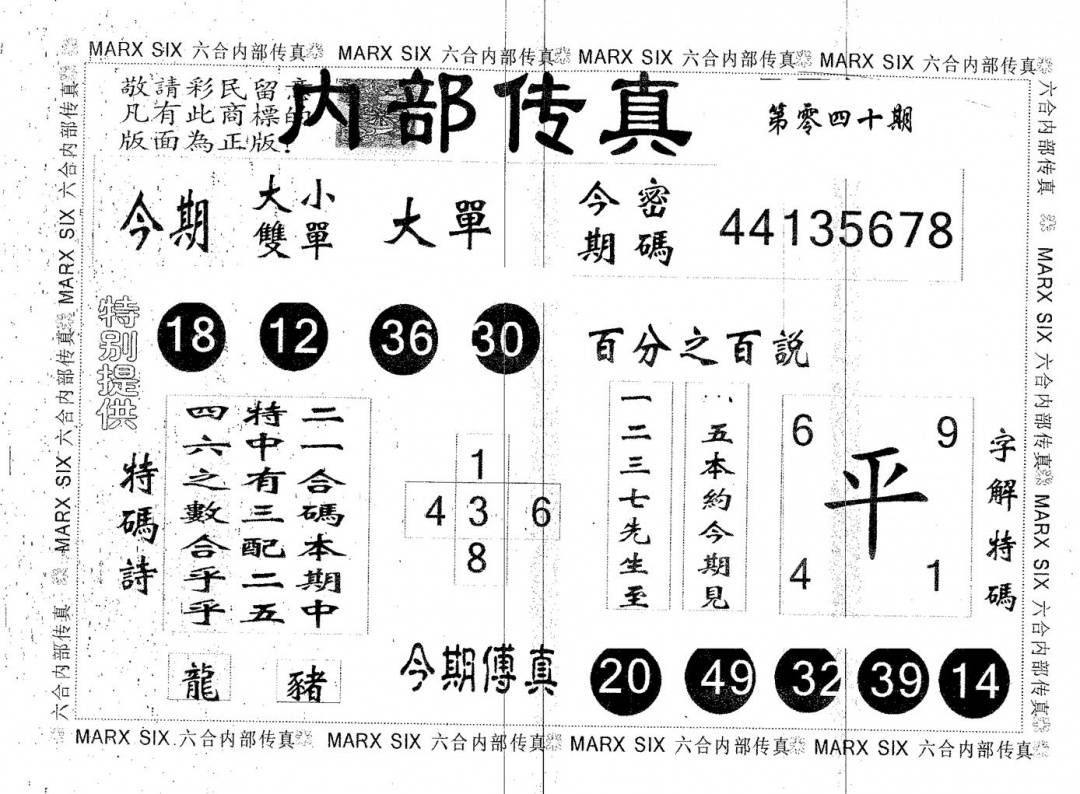 MARX SIX 六合内部传真 MARX SIX 六合内部传真 MARX SIX 六合内部传真 MARX SIX 六合内部传真
敬請彩民留意
凡有此商標的
版面為正版!
内部传真
第零四十期
今期
大小
雙單
大單
今密
期碼
44135678
特别提供
18 12 36 30
百分之百説
特碼詩
二一合碼本期中
特中有三配二五
四六之數合乎乎
1
4 3 6
8
一二三七先生至
八五本約今期見
6 9
平
4 1
字解特碼
龍 豬
今期傳真
20 49 32 39 14
六合内部传真 MARX SIX 六合内部传真 MARX SIX 六合内部传真
六合内部传真 MARX SIX 六合内部传真 MARX SIX 六合内部传真
MARX SIX 六合内部传真 MARX SIX 六合内部传真 MARX SIX 六合内部传真 MARX SIX 六合内部传真